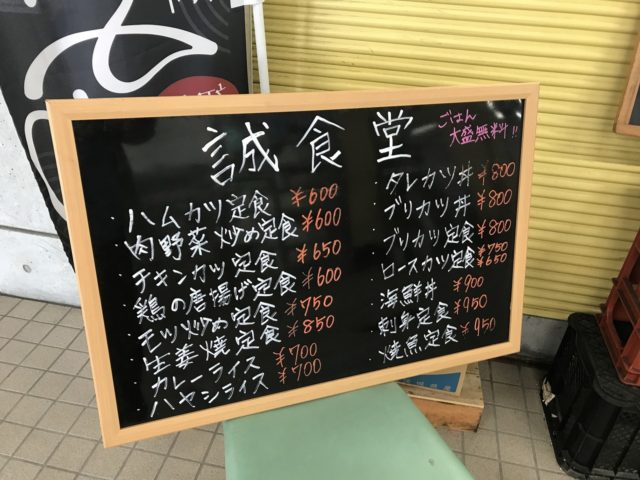 誠食堂
ごはん
大盛無料!!
・ハムカツ定食 ¥600
・肉野菜炒め定食 ¥600
・チキンカツ定食 ¥650
・鶏の唐揚げ定食 ¥600
・モツ炒め定食 ¥750
・生姜焼定食 ¥850
・カレーライス ¥700
・ハヤシライス ¥700
・タレカツ丼 ¥800
・ブリカツ丼 ¥800
・ブリカツ定食 ¥800
・ロースカツ定食 ¥750
¥650
・海鮮丼 ¥900
・刺身定食 ¥950
・焼魚定食 ¥950